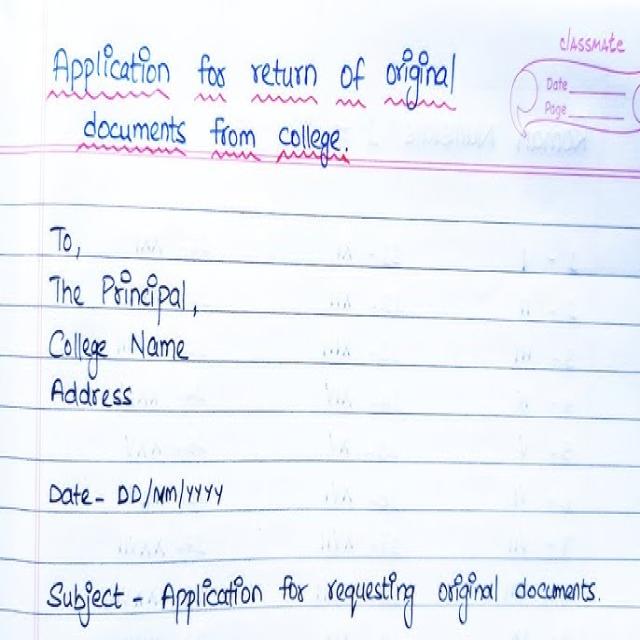 classmate
Date
Page
Application for return of original
documents from college.
To,
The Principal,
College Name
Address
Date - DD/MM/YYYY
Subject - Application for requesting original documents.